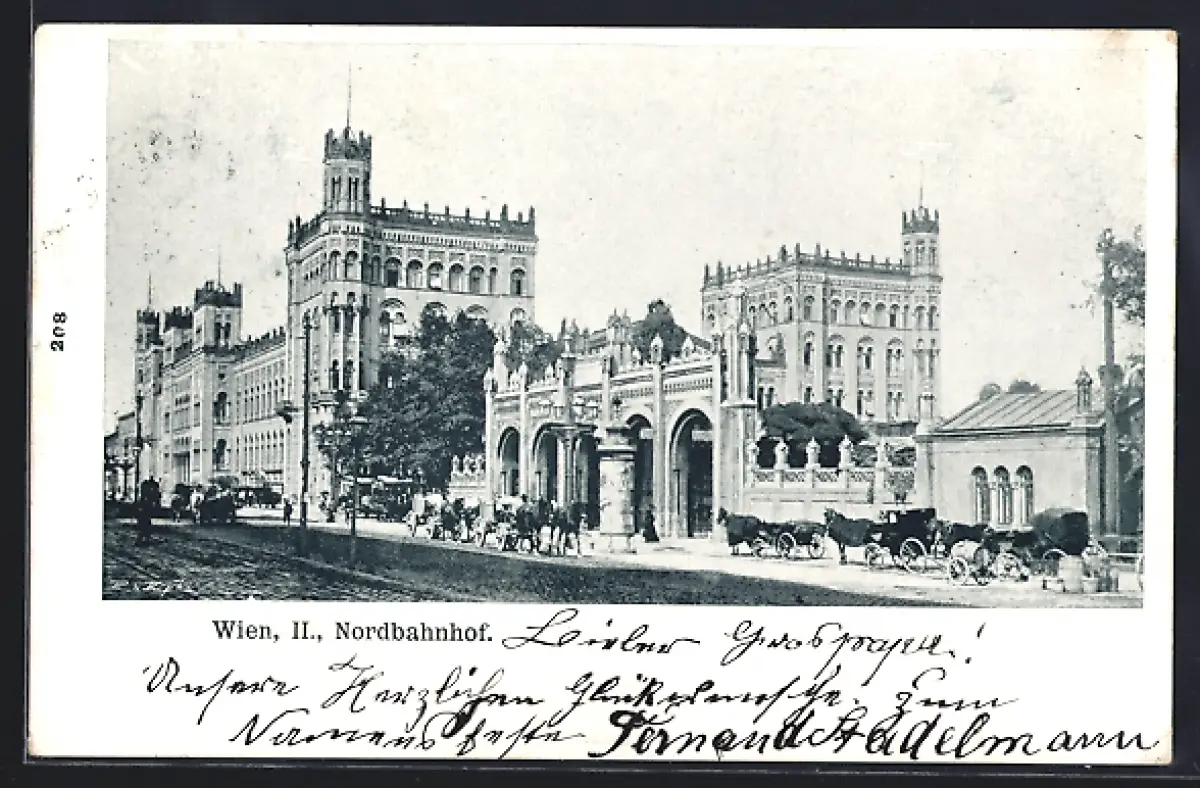 208
Wien, II., Nordbahnhof.
Lieber Grosspapa!
Unsere Herzlichen Glückwünsche. Zum
Namensfeste Fernand Stadelmann